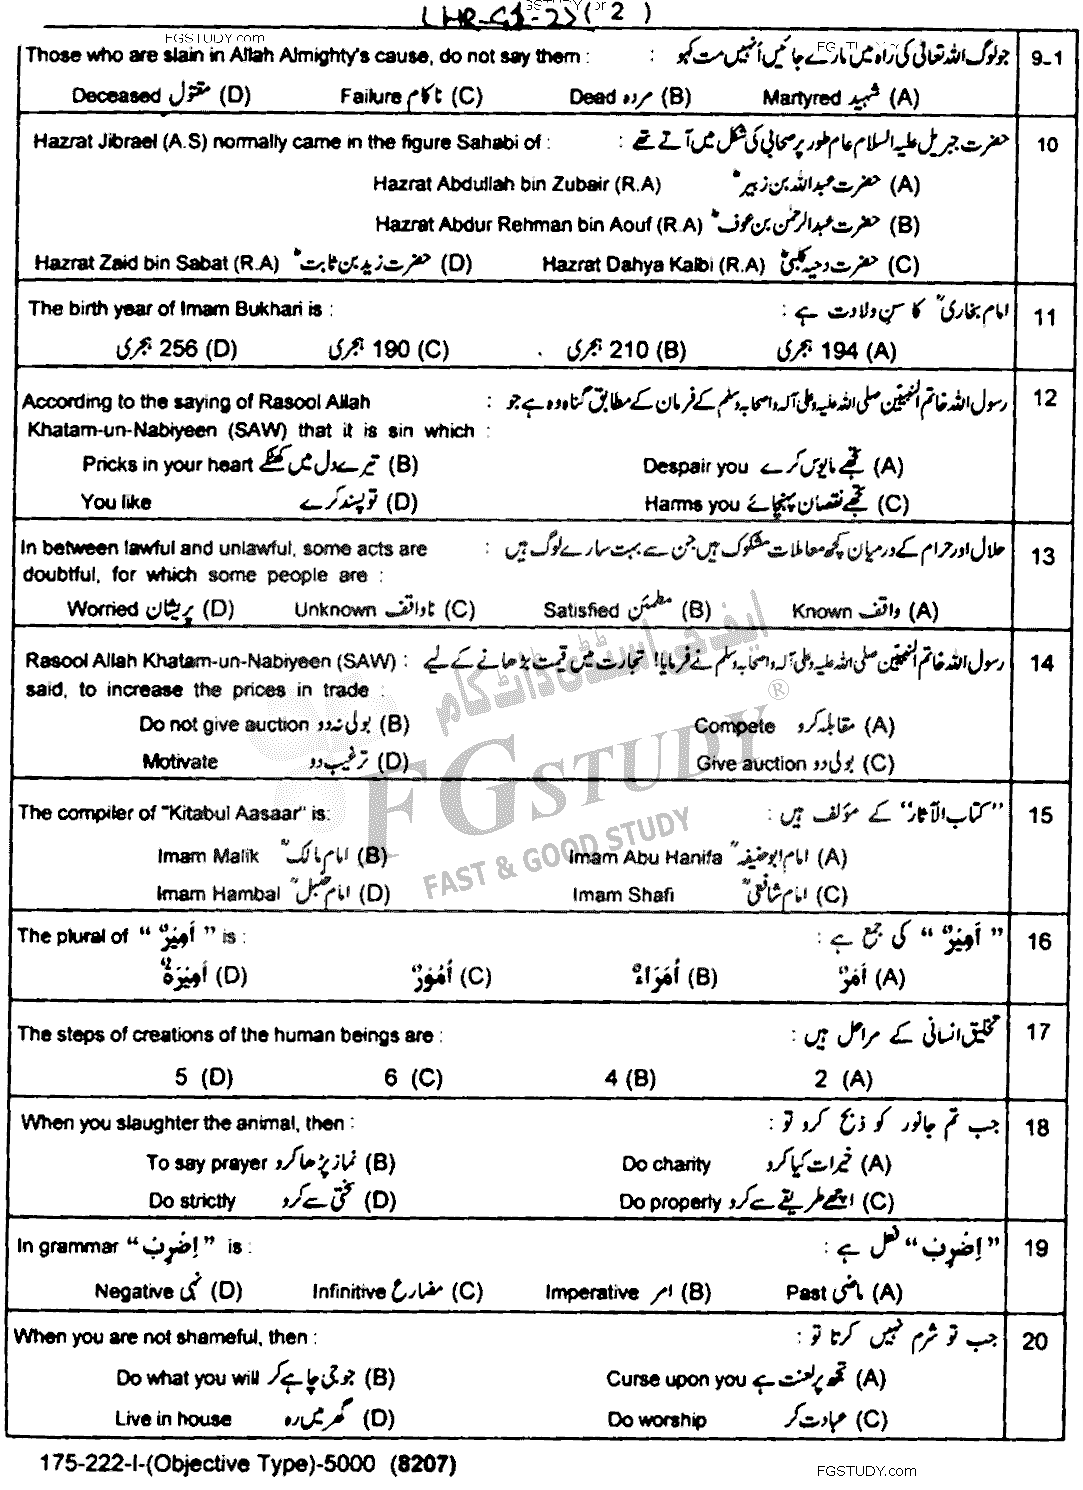 (HR-G1-22) (or 2)
FGSTUDY.com
FGSTUDY.com
FGSTUDY.com
Those who are slain in Allah Almighty's cause, do not say them : جو لوگ اللہ تعالیٰ کی راہ میں مارے جائیں اُنہیں مت کہو : 9-1
Deceased مقتول (D) Failure ناکام (C) Dead مردہ (B) Martyred شہید (A)
Hazrat Jibrael (A.S) normally came in the figure Sahabi of : حضرت جبریل علیہ السلام عام طور پر صحابی کی شکل میں آتے تھے : 10
Hazrat Abdullah bin Zubair (R.A) حضرت عبداللہ بن زبیرؓ (A)
Hazrat Abdur Rehman bin Aouf (R.A) حضرت عبدالرحمٰن بن عوفؓ (B)
Hazrat Zaid bin Sabat (R.A) حضرت زید بن ثابتؓ (D) Hazrat Dahya Kalbi (R.A) حضرت دحیہ کلبیؓ (C)
The birth year of Imam Bukhari is : امام بخاریؒ کا سنِ ولادت ہے : 11
256 ہجری (D) 190 ہجری (C) 210 ہجری (B) 194 ہجری (A)
According to the saying of Rasool Allah رسول اللہ خاتم النبیّین صلی اللہ علیہ وعلی آلہ واصحابہ وسلم کے فرمان کے مطابق گناہ وہ ہے جو : 12
Khatam-un-Nabiyeen (SAW) that it is sin which :
Pricks in your heart تیرے دل میں کھٹکے (B) Despair you تجھے مایوس کرے (A)
You like تو پسند کرے (D) Harms you تجھے نقصان پہنچائے (C)
In between lawful and unlawful, some acts are حلال اور حرام کے درمیان کچھ معاملات مشکوک ہیں جن سے بہت سارے لوگ ہیں : 13
doubtful, for which some people are :
Worried پریشان (D) Unknown ناواقف (C) Satisfied مطمئن (B) Known واقف (A)
Rasool Allah Khatam-un-Nabiyeen (SAW) : رسول اللہ خاتم النبیّین صلی اللہ علیہ وعلی آلہ واصحابہ وسلم نے فرمایا! تجارت میں قیمت بڑھانے کے لیے 14
said, to increase the prices in trade :
Do not give auction بولی نہ دو (B) Compete مقابلہ کرو (A)
Motivate ترغیب دو (D) Give auction بولی دو (C)
The compiler of "Kitabul Aasaar" is: "کتاب الآثار" کے مؤلف ہیں : 15
Imam Malik امام مالکؒ (B) Imam Abu Hanifa امام ابو حنیفہؒ (A)
Imam Hambal امام حنبلؒ (D) Imam Shafi امام شافعیؒ (C)
The plural of "اَمِیْرٌ" is : "اَمِیْرٌ" کی جمع ہے : 16
اَمِیْرَۃٌ (D) اُمُوْرٌ (C) اُمَرَاءٌ (B) اَمَرٌ (A)
The steps of creations of the human beings are : تخلیق انسانی کے مراحل ہیں : 17
5 (D) 6 (C) 4 (B) 2 (A)
When you slaughter the animal, then : جب تم جانور کو ذبح کرو تو : 18
To say prayer نماز پڑھا کرو (B) Do charity خیرات کیا کرو (A)
Do strictly سختی سے کرو (D) Do properly اچھے طریقے سے کرو (C)
In grammar "اِضْرِبْ" is : "اِضْرِبْ" فعل ہے : 19
Negative نہی (D) Infinitive مضارع (C) Imperative امر (B) Past ماضی (A)
When you are not shameful, then : جب تو شرم نہیں کرتا تو : 20
Do what you will جو جی چاہے کر (B) Curse upon you تجھ پر لعنت ہے (A)
Live in house گھر میں رہ (D) Do worship عبادت کر (C)
175-222-I-(Objective Type)-5000 (8207)
FGSTUDY.com
ایف جی اسٹڈی ڈاٹ کام
FGSTUDY ®
FAST & GOOD STUDY